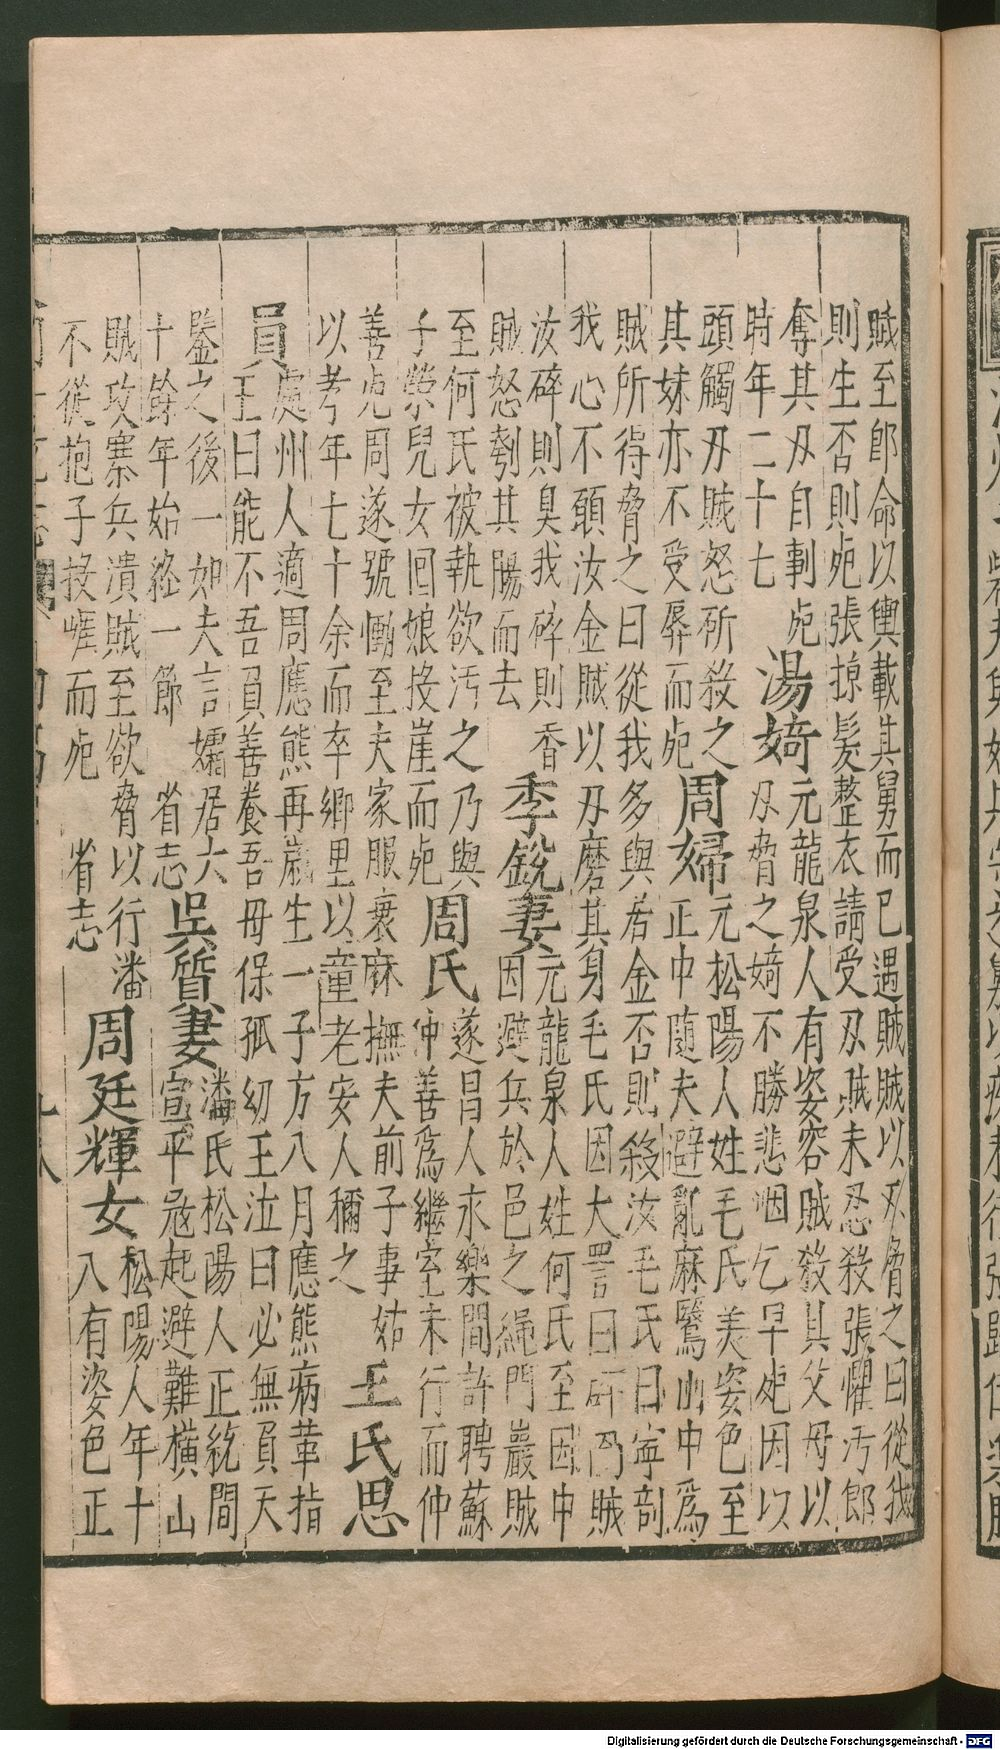 賊至郎命以輿載其舅而已遇賊賊以刃脅之曰從我
則生否則死張掠髮整衣請受刃賊未忍殺張懼汚郎
奪其刃自刲死
時年二十七
湯㛥
元龍泉人有姿容賊殺其父母以
刃脅之㛥不勝悲咽乞早死因以
頭觸刃賊怒斫殺之
其妹亦不受辱而死
周婦
元松陽人姓毛氏美姿色至
正中隨夫避亂麻鷖山中為
賊所得脅之曰從我多與若金否則殺汝毛氏曰寧剖
我心不願汝金賊以刃磨其身毛氏因大詈曰碎賊
汝碎則臭我碎則香
賊怒刳其腸而去
季銳妻
元龍泉人姓何氏至因中
因避兵於邑之繩門巖賊
至何氏被執欲汚之乃與
子榮兒女囘娘投崖而死
周氏
遂昌人永樂間許聘蘇
仲善為繼室未行而仲
善死周遂號慟至夫家服衰麻撫夫前子事姑
以考年七十余而卒鄉里以童老安人稱之
王氏思
員
處州人適周應熊再歲生一子方八月應熊病革指
王曰能不吾員善養吾母保孤幼王泣曰必無員天
鑒之後一如夫言孀居六
十餘年始終一節 省志
吳質妻
潘氏松陽人正統間
宣平㓂起避難橫山
賊攻寨兵潰賊至欲脅以行潘
不從抱子投崖而死 省志
周廷輝女
松陽人年十
八有姿色正
Digitalisierung gefördert durch die Deutsche Forschungsgemeinschaft - DFG